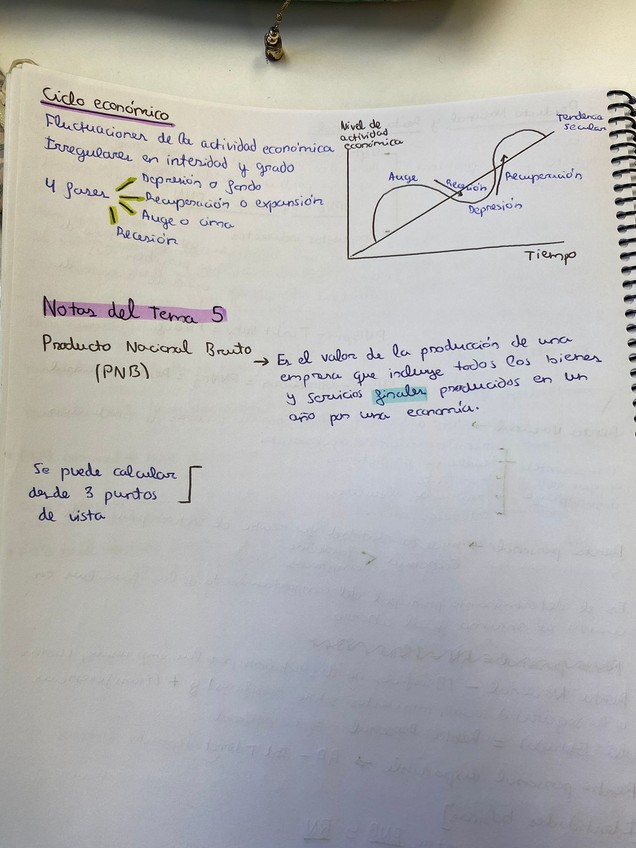 Ciclo económico
Fluctuaciones de la actividad económica
Irregulares en intensidad y grado
4 fases
Depresión o fondo
Recuperación o expansión
Auge o cima
Recesión
Nivel de
actividad
económica
Tendencia
secular
Auge
Recesión
Recuperación
Depresión
Tiempo
Notas del tema 5
Producto Nacional Bruto
(PNB)
→ Es el valor de la producción de una
empresa que incluye todos los bienes
y servicios finales producidos en un
año por una economía.
Se puede calcular
desde 3 puntos
de vista